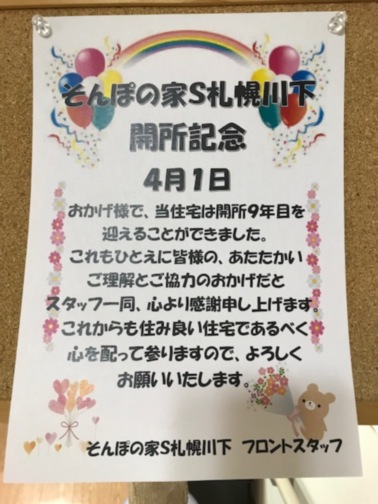 そんぽの家S札幌川下
開所記念
4月1日
おかげ様で、当住宅は開所9年目を
迎えることができました。
これもひとえに皆様の、あたたかい
ご理解とご協力のおかげだと
スタッフ一同、心より感謝申し上げます。
これからも住み良い住宅であるべく
心を配って参りますので、よろしく
お願いいたします。
そんぽの家S札幌川下 フロントスタッフ